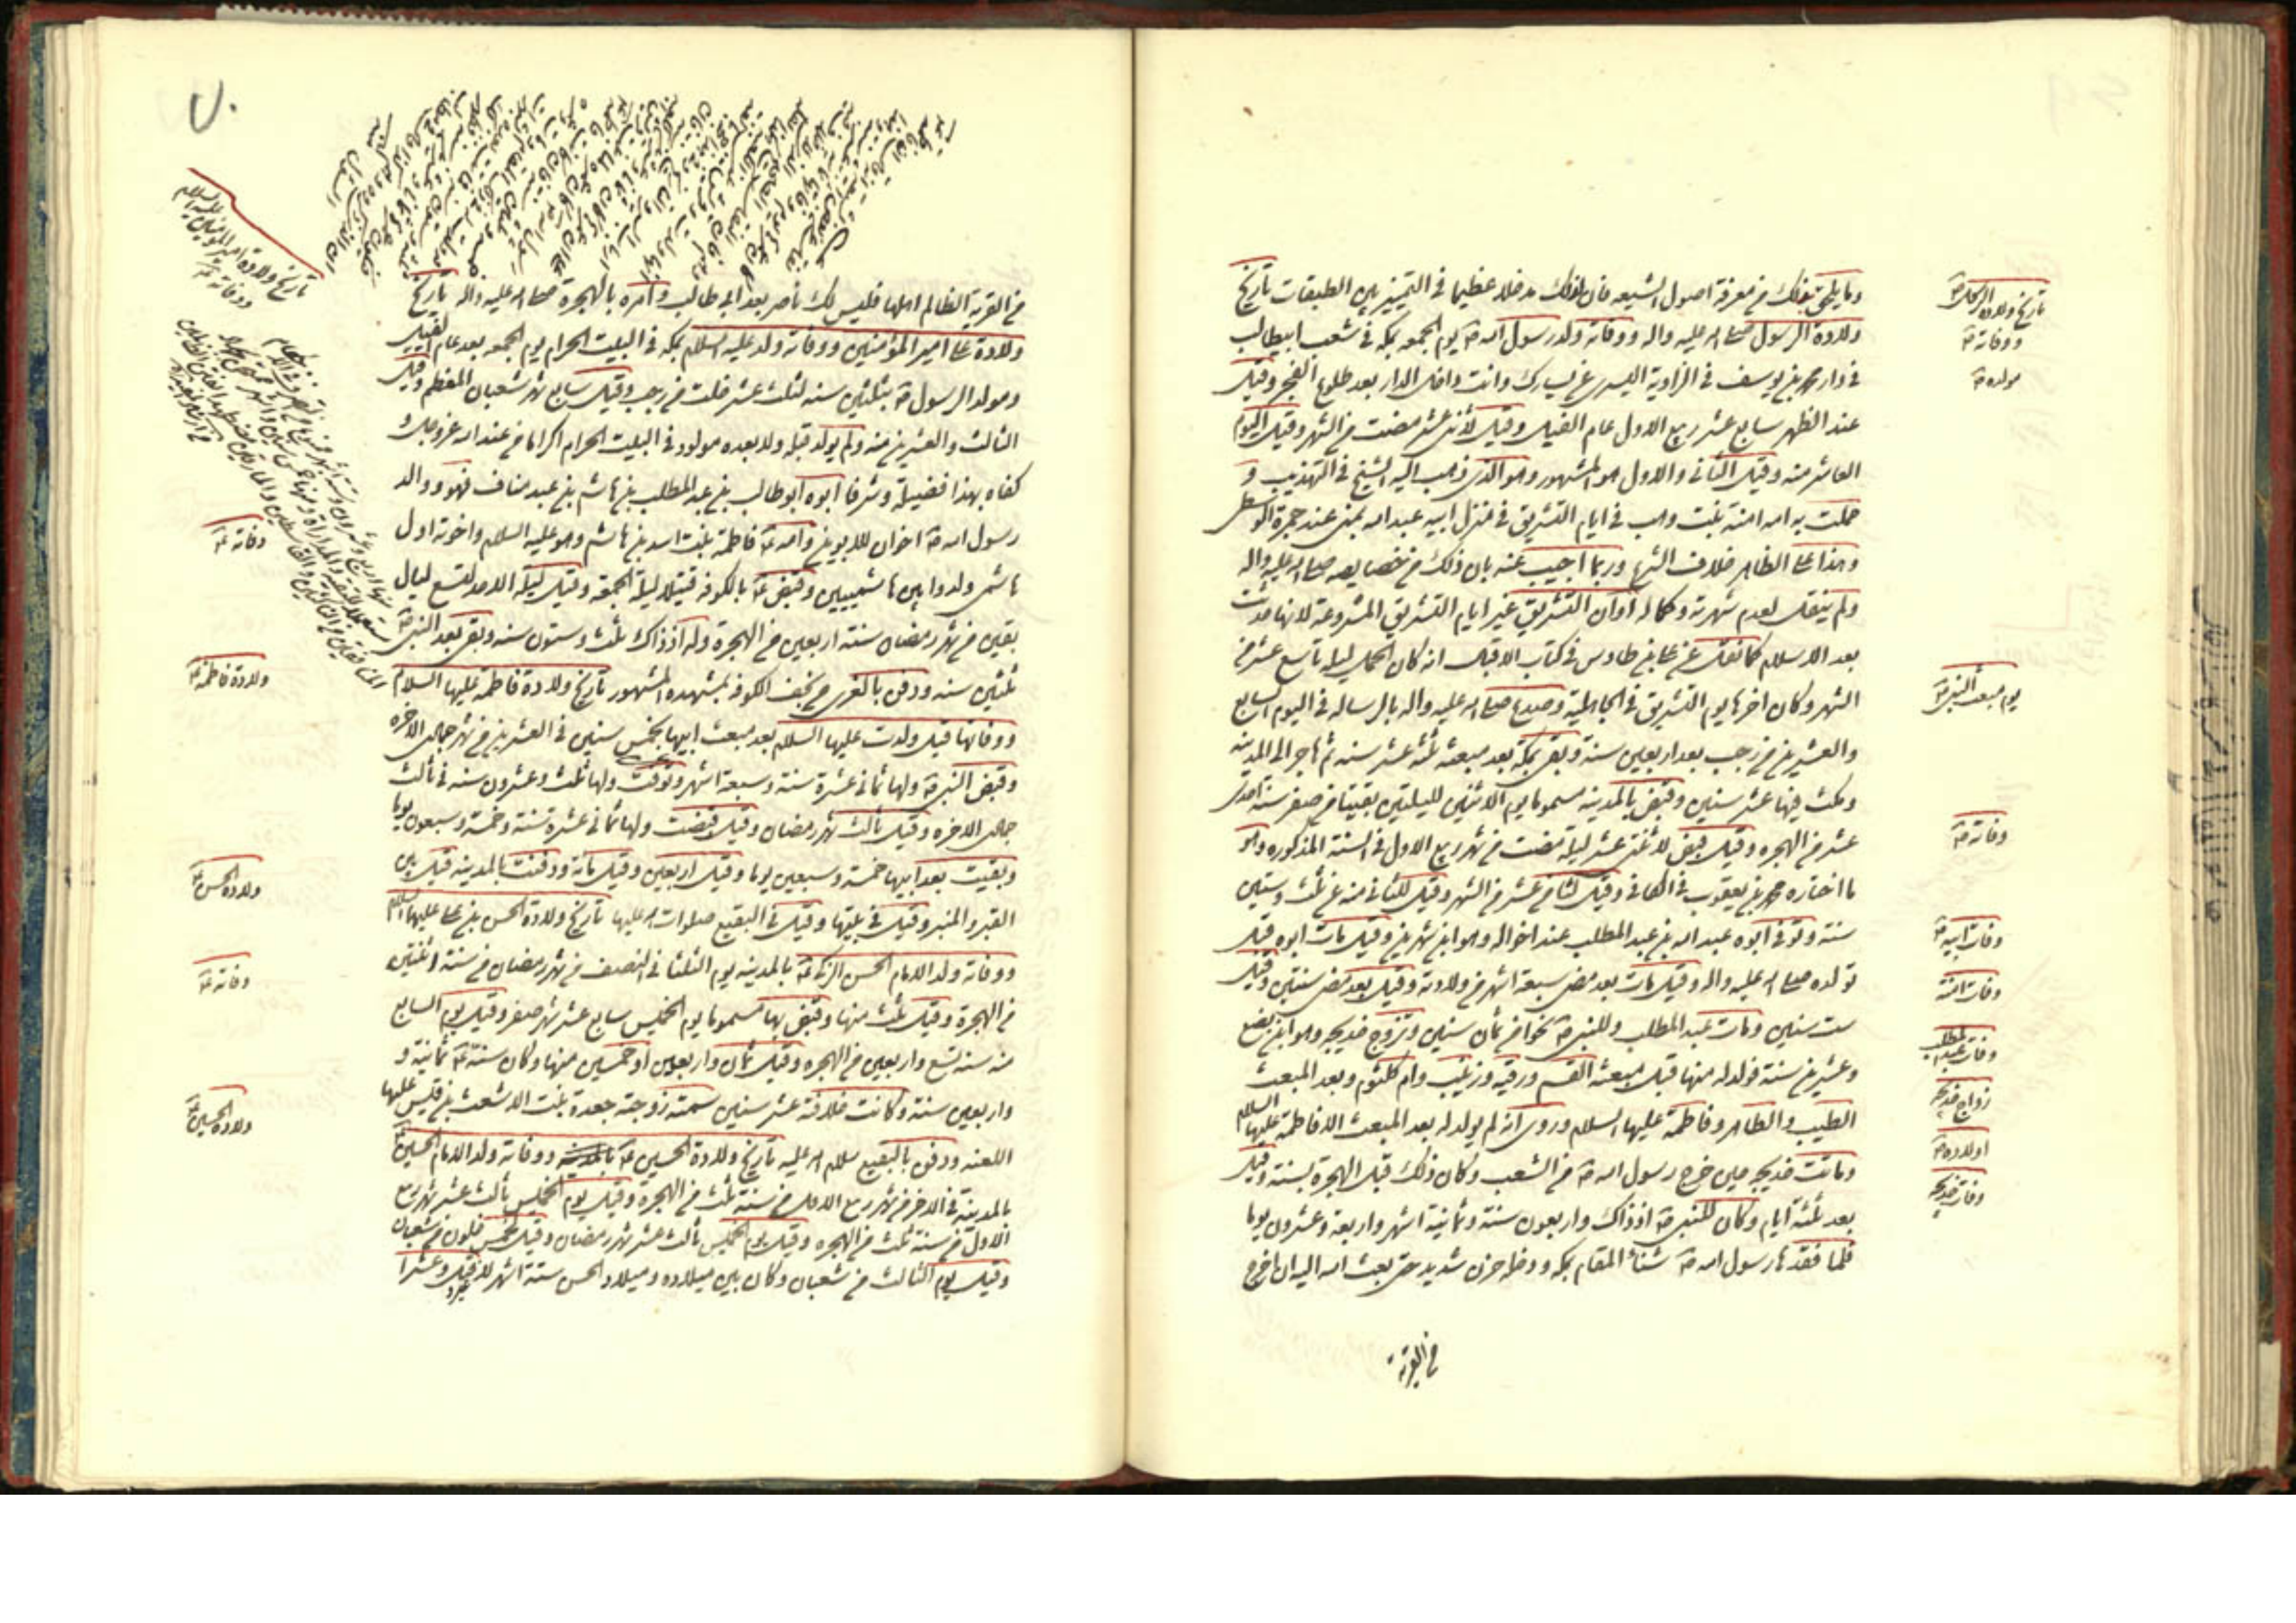 وما يليق بذلك من معرفة اصول الشيعه فان لذلك مدخلا عظيما في التمييز بين الطبقات تاريخ
ولادة الرسول صلى الله عليه واله ووفاته ولد رسول الله ص يوم الجمعه بمكه في شعب ابيطالب
في دار محمد بن يوسف في الزاوية اليسرى عن يسارك وانت داخل الدار بعد طلوع الفجر وقيل
عند الظهر سابع عشر ربيع الاول عام الفيل وقيل لاثنى عشر مضت من الشهر وقيل اليوم
العاشر منه وقيل الثاني والاول هو المشهور وهو الذى ذهب اليه الشيخ في التهذيب و
حملت به امه امنة بنت وهب في ايام التشريق في منزل ابيه عبد الله بمنى عند جمرة الوسطى
وهذا على الظاهر خلاف الشرع وربما اجيب عنه بان ذلك من خصايصه صلى الله عليه واله
ولم ينقل لعدم شهرته وكماله اوان التشريق غير ايام التشريق المشروعة لانها حدثت
بعد الاسلام كما نقل عن على بن طاوس في كتاب الاقبال انه كان الحمل ليلة تاسع عشر من
الشهر وكان اخرها يوم التشريق في الجاهلية وصدع صلى الله عليه واله بالرساله في اليوم السابع
والعشرين من رجب بعد اربعين سنة وبقى بمكة بعد مبعثه ثلثة عشر سنه ثم هاجر الى المدينه
ومكث فيها عشر سنين وقبض بالمدينه مسموما يوم الاثنين لليلتين بقيتا من صفر سنة احدى
عشر من الهجره وقيل قبض لاثنتى عشر ليلة مضت من شهر ربيع الاول في السنة المذكوره وهو
ما اختاره محمد بن يعقوب في الكافي وقيل لثامن عشر من الشهر وقيل للثاني منه عن ثلث وستين
سنة وتوفى ابوه عبد الله بن عبد المطلب عند اخواله وهو ابن شهرين وقيل مات ابوه قبل
تولده صلى الله عليه واله وقيل مات بعد مضى سبعة اشهر من ولادته وقيل بعد مضى سنتين وقيل
ست سنين ومات عبد المطلب وللنبى ص نحوا من ثمان سنين وتزوج خديجه وهو ابن بضع
وعشرين سنة فولد له منها قبل مبعثه القسم ورقيه وزينب وام كلثوم وبعد المبعث
الطيب والطاهر وفاطمة عليها السلام وروى انه لم يولد له بعد المبعث الا فاطمة عليها السلام
وماتت خديجه حين خرج رسول الله ص من الشعب وكان ذلك قبل الهجرة بسنة وقيل
بعد ثلثة ايام وكان للنبى ص اذ ذاك واربعون سنة وثمانية اشهر واربعة وعشرون يوما
فلما فقدها رسول الله ص شنأ المقام بمكه ودخله حزن شديد حتى بعث الله اليه ان اخرج
من القرية
تاريخ ولادة الرسول ص
ووفاته ص
مولده ص
يوم مبعث النبى ص
وفاته ص
وفات ابيه ص
وفات امنة
وفات عبد المطلب
زواج خديجه
اولاده ص
وفات خديجه
٧٠
من القرية الظالم اهلها فليس لك ناصر بعد ابي طالب وامره بالهجرة صلى الله عليه واله تاريخ
ولادة على امير المؤمنين ووفاته ولد عليه السلام بمكه في البيت الحرام يوم الجمعه بعد عام الفيل
ومولد الرسول ص بثلثين سنه لثلث عشر خلت من رجب وقيل سابع شهر شعبان المعظم وقيل
الثالث والعشرين منه ولم يولد قبله ولا بعده مولود في البيت الحرام اكراما من عند الله عز وجل
كفاه بهذا فضيلة وشرفا ابوه ابو طالب بن عبد المطلب بن هاشم بن عبد مناف فهو ووالد
رسول الله ص اخوان للابوين وامه ع فاطمة بنت اسد بن هاشم وهو عليه السلام واخوته اول
هاشمى ولدوا بين هاشميين وقبض ع بالكوفه قتيلا ليلة الجمعة وقيل ليلة الاحد لتسع ليال
بقين من شهر رمضان سنة اربعين من الهجرة وله اذ ذاك ثلث وستون سنه وبقى بعد النبى ص
ثلثين سنه ودفن بالغرى من نجف الكوفه بمشهده المشهور تاريخ ولادة فاطمه عليها السلام
ووفاتها قيل ولدت عليها السلام بعد مبعث ابيها بخمس سنين في العشرين من شهر جمادى الاخره
وقبض النبى ص ولها ثماني عشرة سنة وسبعة اشهر وتوفت ولها ثلث وعشرون سنه في ثالث
جمادى الاخره وقيل ثالث شهر رمضان وقيل قبضت ولها ثماني عشرة سنة وخمسة وسبعون يوما
وبقيت بعد ابيها خمسة وسبعين يوما وقيل اربعين وقيل مأة ودفنت بالمدينه قيل بين
القبر والمنبر وقيل في بيتها وقيل في البقيع صلوات الله عليها تاريخ ولادة الحسن بن على عليهما السلام
ووفاته ولد الامام الحسن الزكى ع بالمدينه يوم الثلثا في النصف من شهر رمضان من سنة اثنتين
من الهجرة وقيل ثلث منها وقبض بها مسموما يوم الخميس سابع عشر شهر صفر وقيل يوم السابع
منه سنه تسع واربعين من الهجره وقيل ثمان واربعين او خمسين منها وكان سنه ع ثمانية و
واربعين سنة وكانت خلافته عشر سنين سمته زوجته جعدة بنت الاشعث بن قيس عليها
اللعنه ودفن بالبقيع سلام الله عليه تاريخ ولادة الحسين ع ووفاته ولد الامام الحسين ع
بالمدينة في الاخر من شهر ربيع الاول من سنة ثلث من الهجرة وقيل يوم الخميس ثالث عشر شهر ربيع
الاول من سنة ثلث من الهجره وقيل يوم الخميس ثالث عشر شهر رمضان وقيل لخمس خلون من شعبان
وقيل يوم الثالث من شعبان وكان بين ميلاده وميلاد الحسن ستة اشهر وعشرا
تاريخ ولادة امير المؤمنين عليه السلام
ووفاته ع
وفاته ع
ولادة فاطمة ع
ولادة الحسن ع
وفاته ع
ولادة الحسين ع